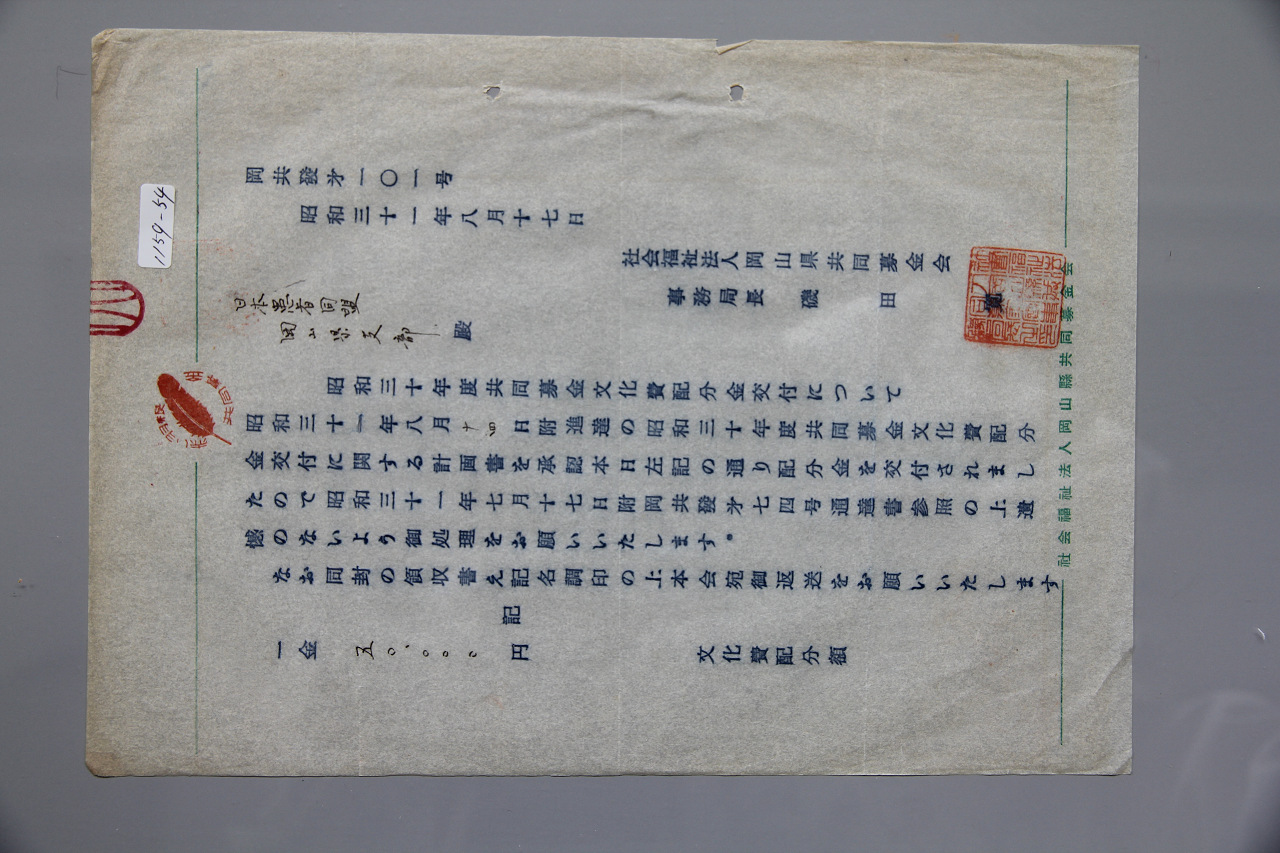 岡共發才一〇一号
昭和三十一年八月十七日
社会福祉法人岡山県共同募金会
事務局長 磯田
日本患者同盟
岡山県支部 殿
昭和三十年度共同募金文化費配分金交付について
昭和三十一年八月十四日附進達の昭和三十年度共同募金文化費配分
金交付に関する計画書を承認本日左記の通り配分金を交付されまし
たので昭和三十一年七月十七日附岡共發才七四号通達書参照の上遺
憾のないよう御処理をお願いいたします。
なお同封の領収書え記名調印の上本会宛御返送をお願いいたします
記
一金 五〇、〇〇〇円 文化費配分額
社会福祉法人岡山縣共同募金会
1159-54